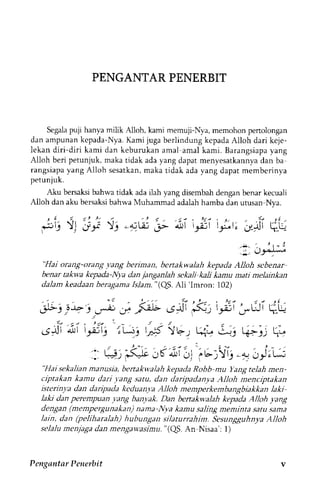 PENGANTAR PENERBIT
Segala puji hanya milik Alloh, kami memuji-Nya, memohon pertolongan
dan ampunan kepada-Nya. Kami juga berlindung kepada Alloh dari keje-
lekan diri-diri kami dan keburukan amal-amal kami. Barangsiapa yang
Alloh beri petunjuk, maka tidak ada yang dapat menyesatkannya dan ba-
rangsiapa yang Alloh sesatkan, maka tidak ada yang dapat memberinya
petunjuk.
Aku bersaksi bahwa tidak ada ilah yang disembah dengan benar kecuali
Alloh dan aku bersaksi bahwa Muhammad adalah hamba dan utusan-Nya.
يا أيها الذين آمنوا اتقوا الله حق تقاته ولا تموتن إلا وأنتم
مسلمون
"Hai orang-orang yang beriman, bertakwalah kepada Alloh sebenar-
benar takwa kepada-Nya dan janganlah sekali-kali kamu mati melainkan
dalam keadaan beragama Islam."(QS. Ali 'Imron: 102)
يا أيها الناس اتقوا ربكم الذي خلقكم من نفس واحدة وخلق
منها زوجها وبث منهما رجالا كثيرا ونساء واتقوا الله الذي
تساءلون به والأرحام إن الله كان عليكم رقيبا
"Hai sekalian manusia, bertakwalah kepada Robb-mu Yang telah men-
ciptakan kamu dari yang satu, dan daripadanya Alloh menciptakan
isterinya dan daripada keduanya Alloh memperkembangbiakkan laki-
laki dan perempuan yang banyak. Dan bertakwalah kepada Alloh yang
dengan (mempergunakan) nama-Nya kamu saling meminta satu sama
lain, dan (peliharalah) hubungan silaturrahim. Sesungguhnya Alloh
selalu menjaga dan mengawasimu."(QS. An-Nisaa': 1)
Pengantar Penerbit v